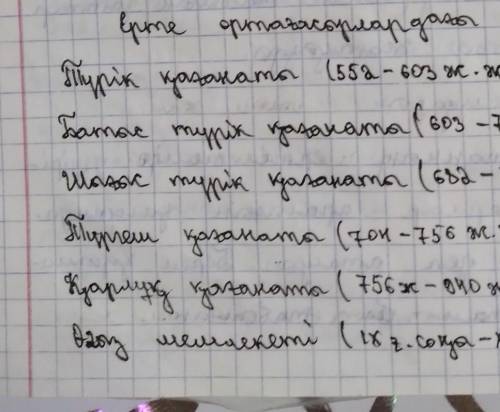 Ерте ортағасырлардағы
Түрік қағанаты (552 - 603 ж.ж
Батыс түрік қағанаты (603 - 7
Шығыс түрік қағанаты (682 -
Түргеш қағанаты (704 - 756 ж.
Қарлұқ қағанаты (756ж - 940 ж
Оғыз мемлекеті (IX ғ. соңы -